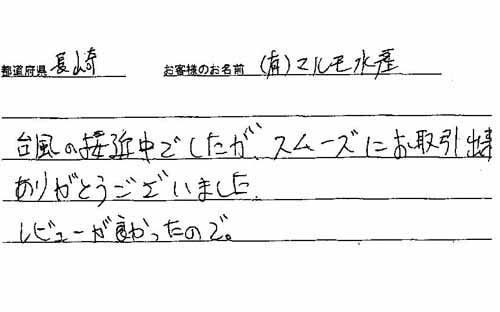 都道府県 長崎 お客様のお名前 (有)マルモ水産
台風の接近中でしたが、スムーズにお取引出来
ありがとうございました。
レビューが良かったので。